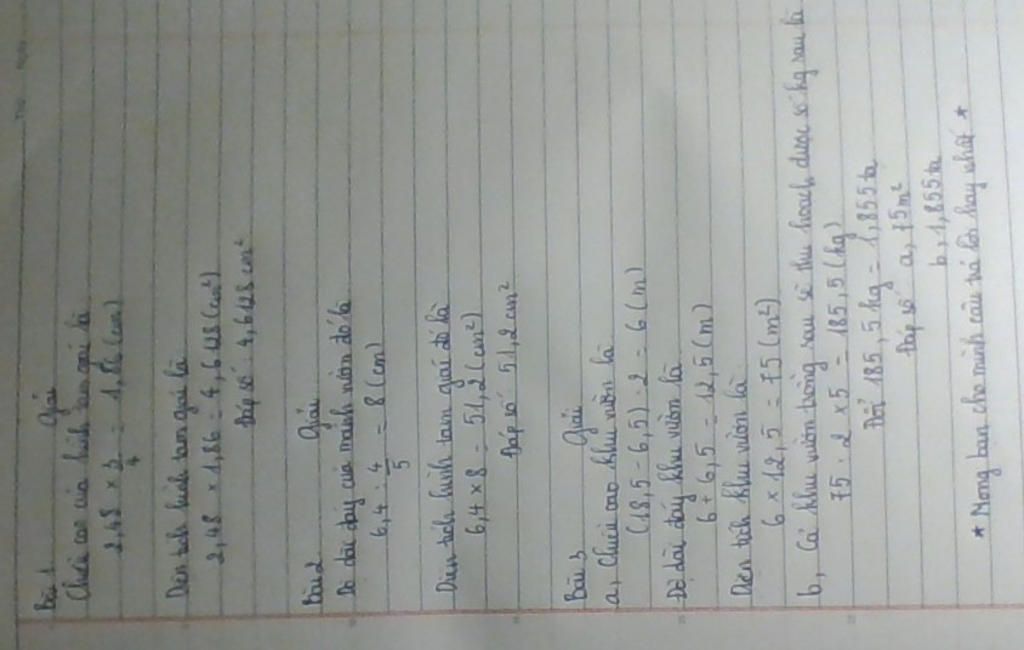 Bài 1 Giải
Chiều cao của hình tam giác là
2,48 × 3/4 = 1,86 (cm)
Diện tích hình tam giác là
2,48 × 1,86 = 4,6128 (cm²)
Đáp số: 4,6128 cm²
Bài 2 Giải
Độ dài đáy của mảnh vườn đó là
6,4 : 4/5 = 8 (cm)
Diện tích hình tam giác đó là
6,4 × 8 = 51,2 (cm²)
Đáp số 51,2 cm²
Bài 3 Giải
a, Chiều cao khu vườn là
(18,5 - 6,5) : 2 = 6 (m)
Độ dài đáy khu vườn là
6 + 6,5 = 12,5 (m)
Diện tích khu vườn là
6 × 12,5 = 75 (m²)
b, Cả khu vườn trồng rau sẽ thu hoạch được số kg rau là
75 : 2 × 5 = 185,5 (kg)
Đổi 185,5 kg = 1,855 tạ
Đáp số a, 75 m²
b, 1,855 tạ
* Mong bạn cho mình câu trả lời hay nhất *